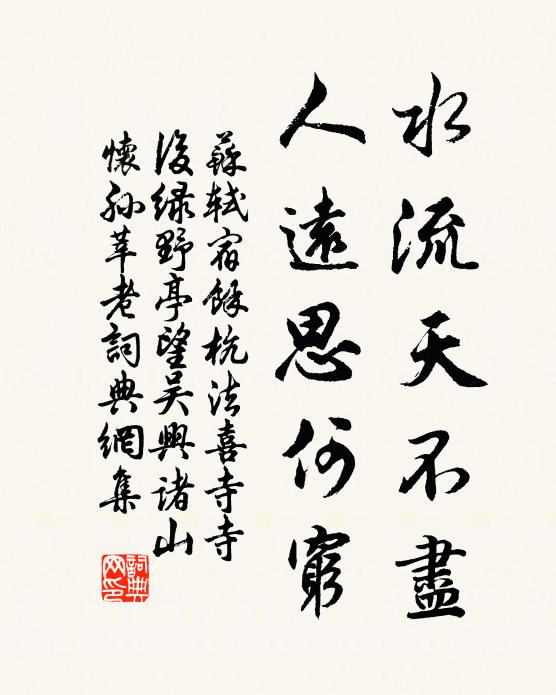 水流天不盡
人遠思何窮
蘇軾宿餘杭法喜寺寺
後緑野亭望吴興諸山
懷孙莘老詞典網集
詞典
网印